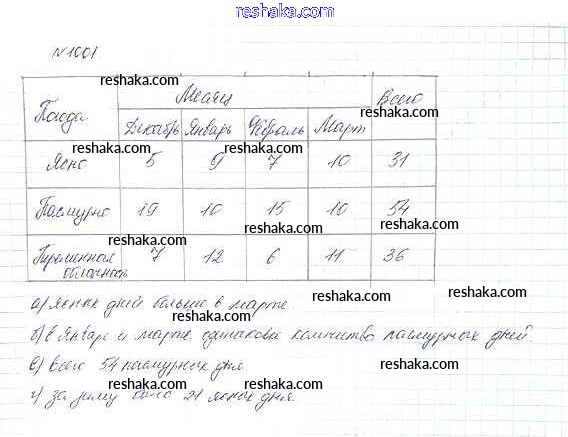 reshaka.com
N1001
Погода Месяц Всего
Декабрь Январь Февраль Март
Ясно 5 9 7 10 31
Пасмурно 19 10 15 10 54
Переменная облачность 7 12 6 11 36
а) ясных дней больше в марте
б) в январе и марте одинаковое количество пасмурных дней.
в) всего 54 пасмурных дня
г) за зиму было 21 ясных дня
reshaka.com
reshaka.com
reshaka.com
reshaka.com
reshaka.com
reshaka.com
reshaka.com
reshaka.com
reshaka.com
reshaka.com
reshaka.com
reshaka.com
reshaka.com
reshaka.com